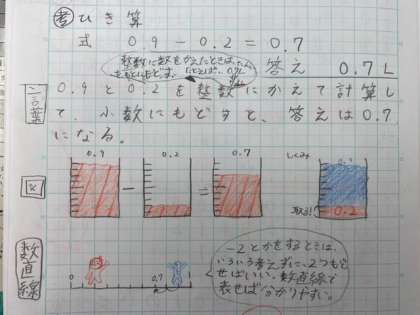 考 ひき算
式 0.9 - 0.2 = 0.7
答え 0.7L
整数に数をかえたときは、
もともどす。たとえば、
言葉
0.9と0.2を整数にかえて計算し
て、小数にもどすと、答えは0.7
になる。
図
0.9 0.2 0.7 しくみ
- =
取る! 0.2
数直線
-2とかをするときは、
いろいろ考えずに-2つもど
せばいい。数直線で
表せば分かりやすい。
0 0.7